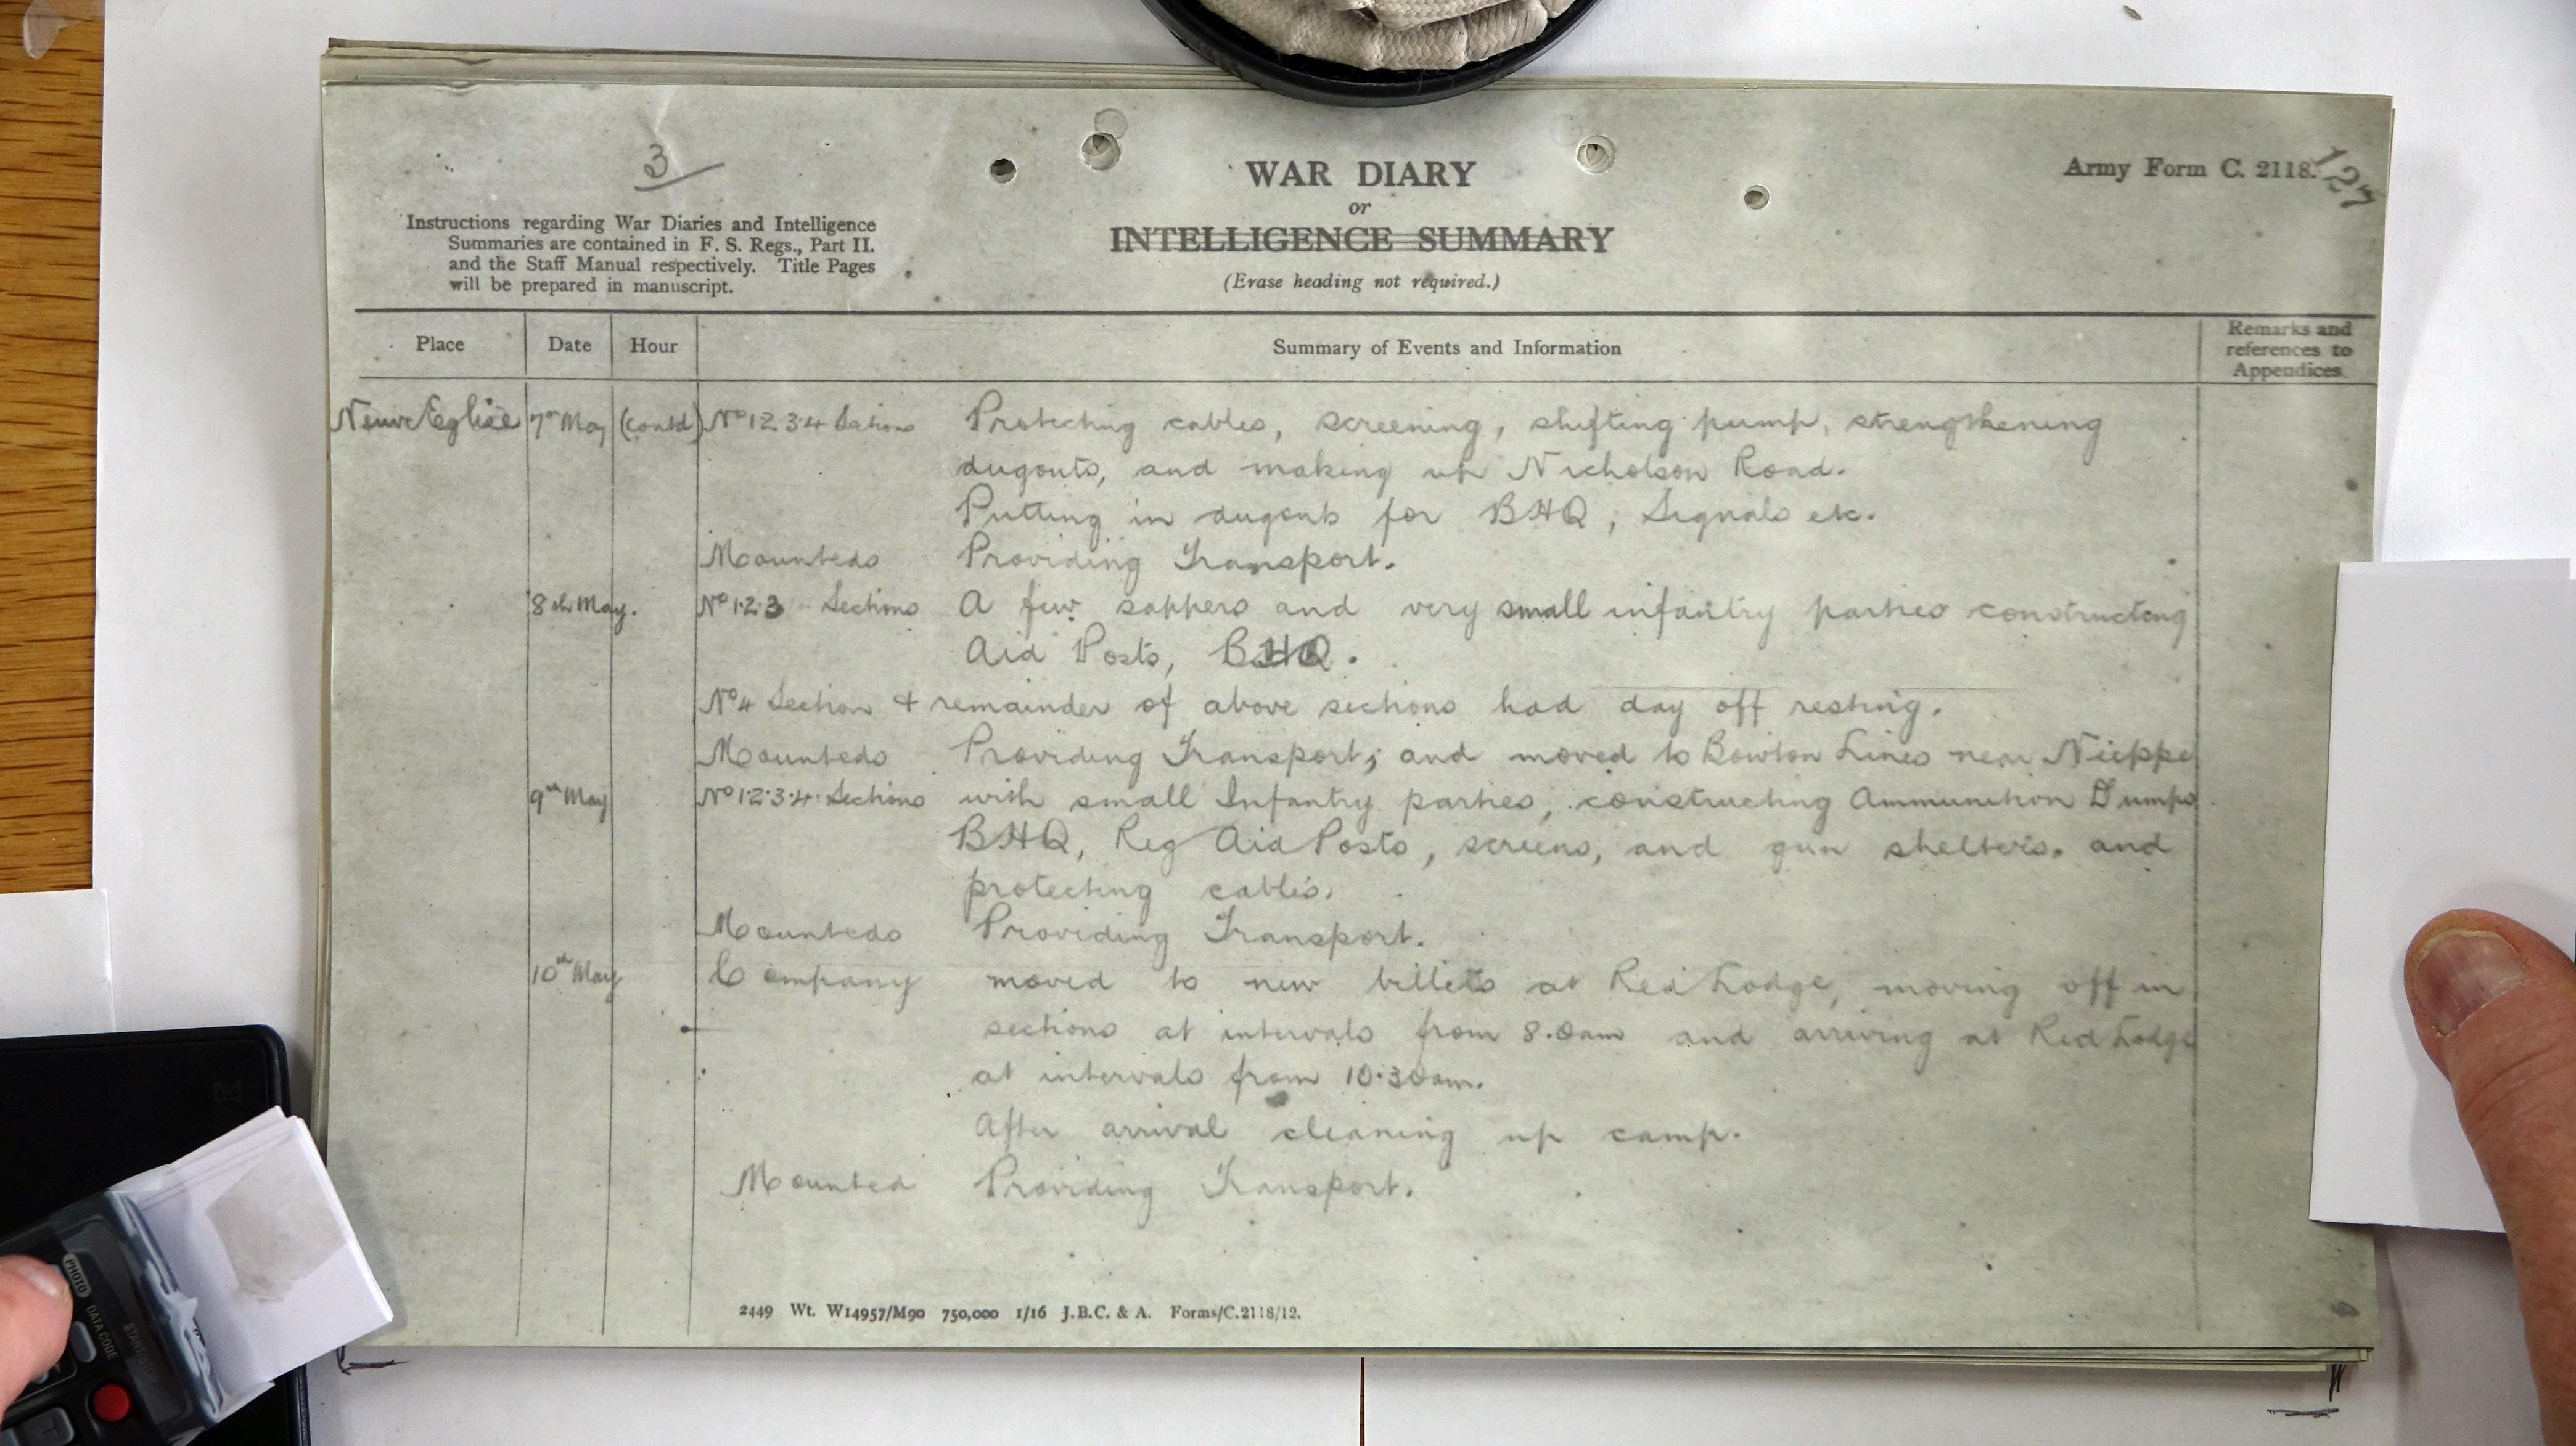 3
WAR DIARY
or
INTELLIGENCE SUMMARY
(Erase heading not required.)
Army Form C. 2118.
127
Instructions regarding War Diaries and Intelligence
Summaries are contained in F. S. Regs., Part II.
and the Staff Manual respectively. Title Pages
will be prepared in manuscript.
Place Date Hour Summary of Events and Information Remarks and references to Appendices
Neuve Eglise 7th May (contd) No 1.2.3.4 Sections Protecting cables, screening, shifting pump, strengthening
dugouts, and making up Nicholson Road.
Putting in dugouts for BHQ, Signals etc.
Mounteds Providing Transport.
8th May. No 1.2.3 Sections A few sappers and very small infantry parties constructing
Aid Posts, BHQ.
No 4 Section & remainder of above sections had day off resting.
Mounteds Providing Transport; and moved to Lines near Nieppe
9th May No 1.2.3.4. Sections with small Infantry parties, constructing Ammunition Dumps
BHQ, Reg Aid Posts, screens, and gun shelters. and
protecting cables.
Mounteds Providing Transport.
10th May Company moved to new billets at Red Lodge, moving off in
sections at intervals from 8.0am and arriving at Red Lodge
at intervals from 10.30am.
After arrival cleaning up camp.
Mounted Providing Transport.
2449 Wt. W14957/M90 750,000 1/16 J.B.C. & A. Forms/C.2118/12.
PHOTO
DATA CODE
START/STOP